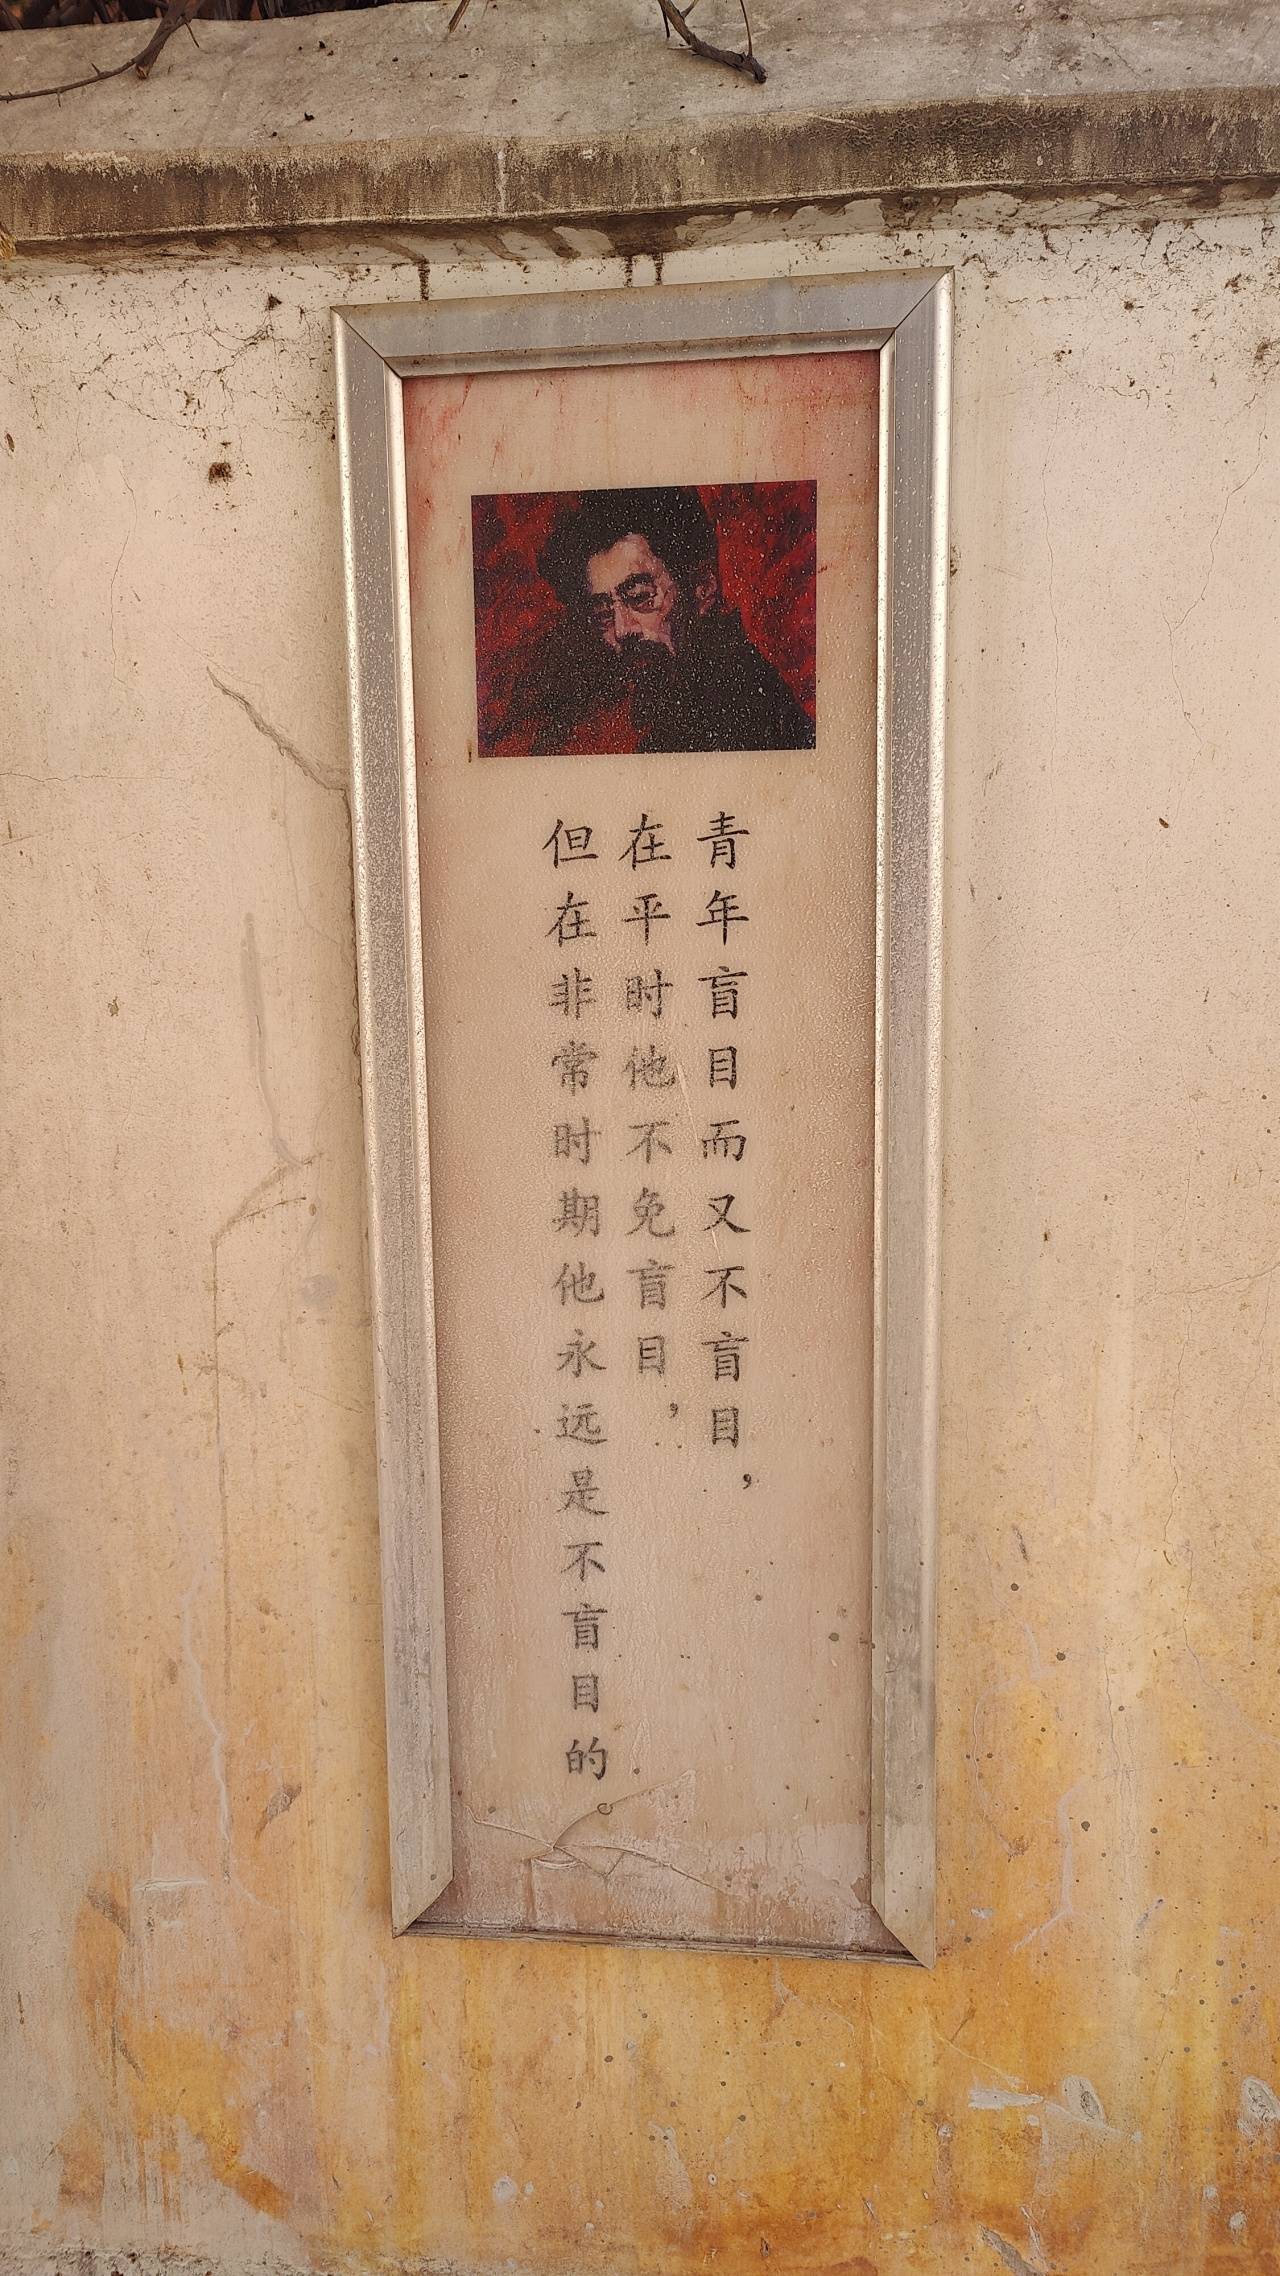 青年盲目而又不盲目，
在平时他不免盲目，
但在非常时期他永远是不盲目的。